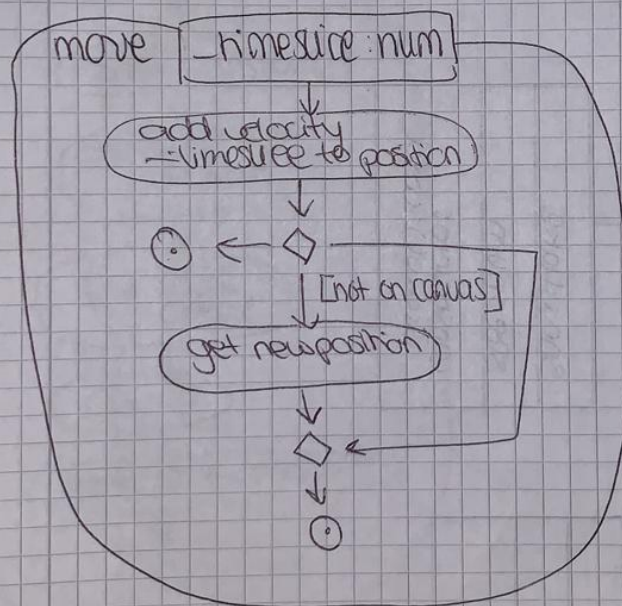 move _timeslice:num
add velocity
_timeslice to position
[not on canvas]
get new position